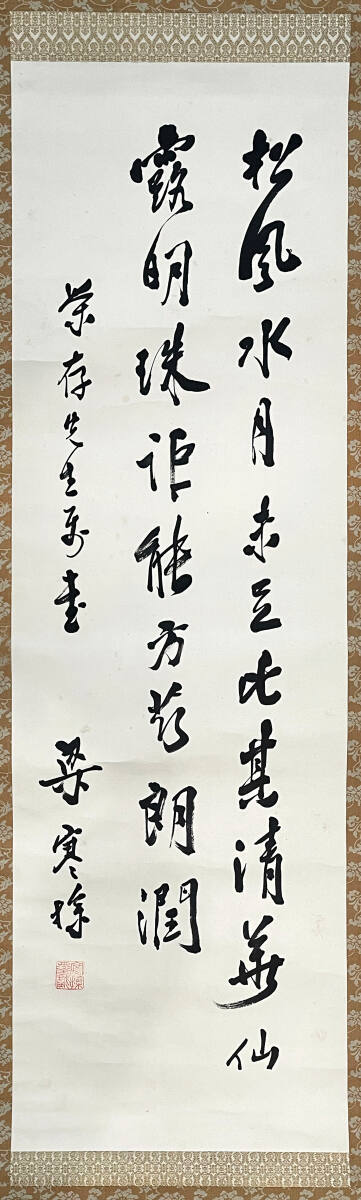 松風水月未足比其清華仙
露明珠詎能方茲朗潤
荣存先生属書
梁寒操